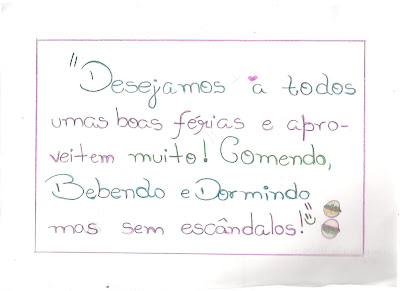 "Desejamos a todos
umas boas férias e apro-
veitem muito! Comendo,
Bebendo e Dormindo
mas sem escândalos!"